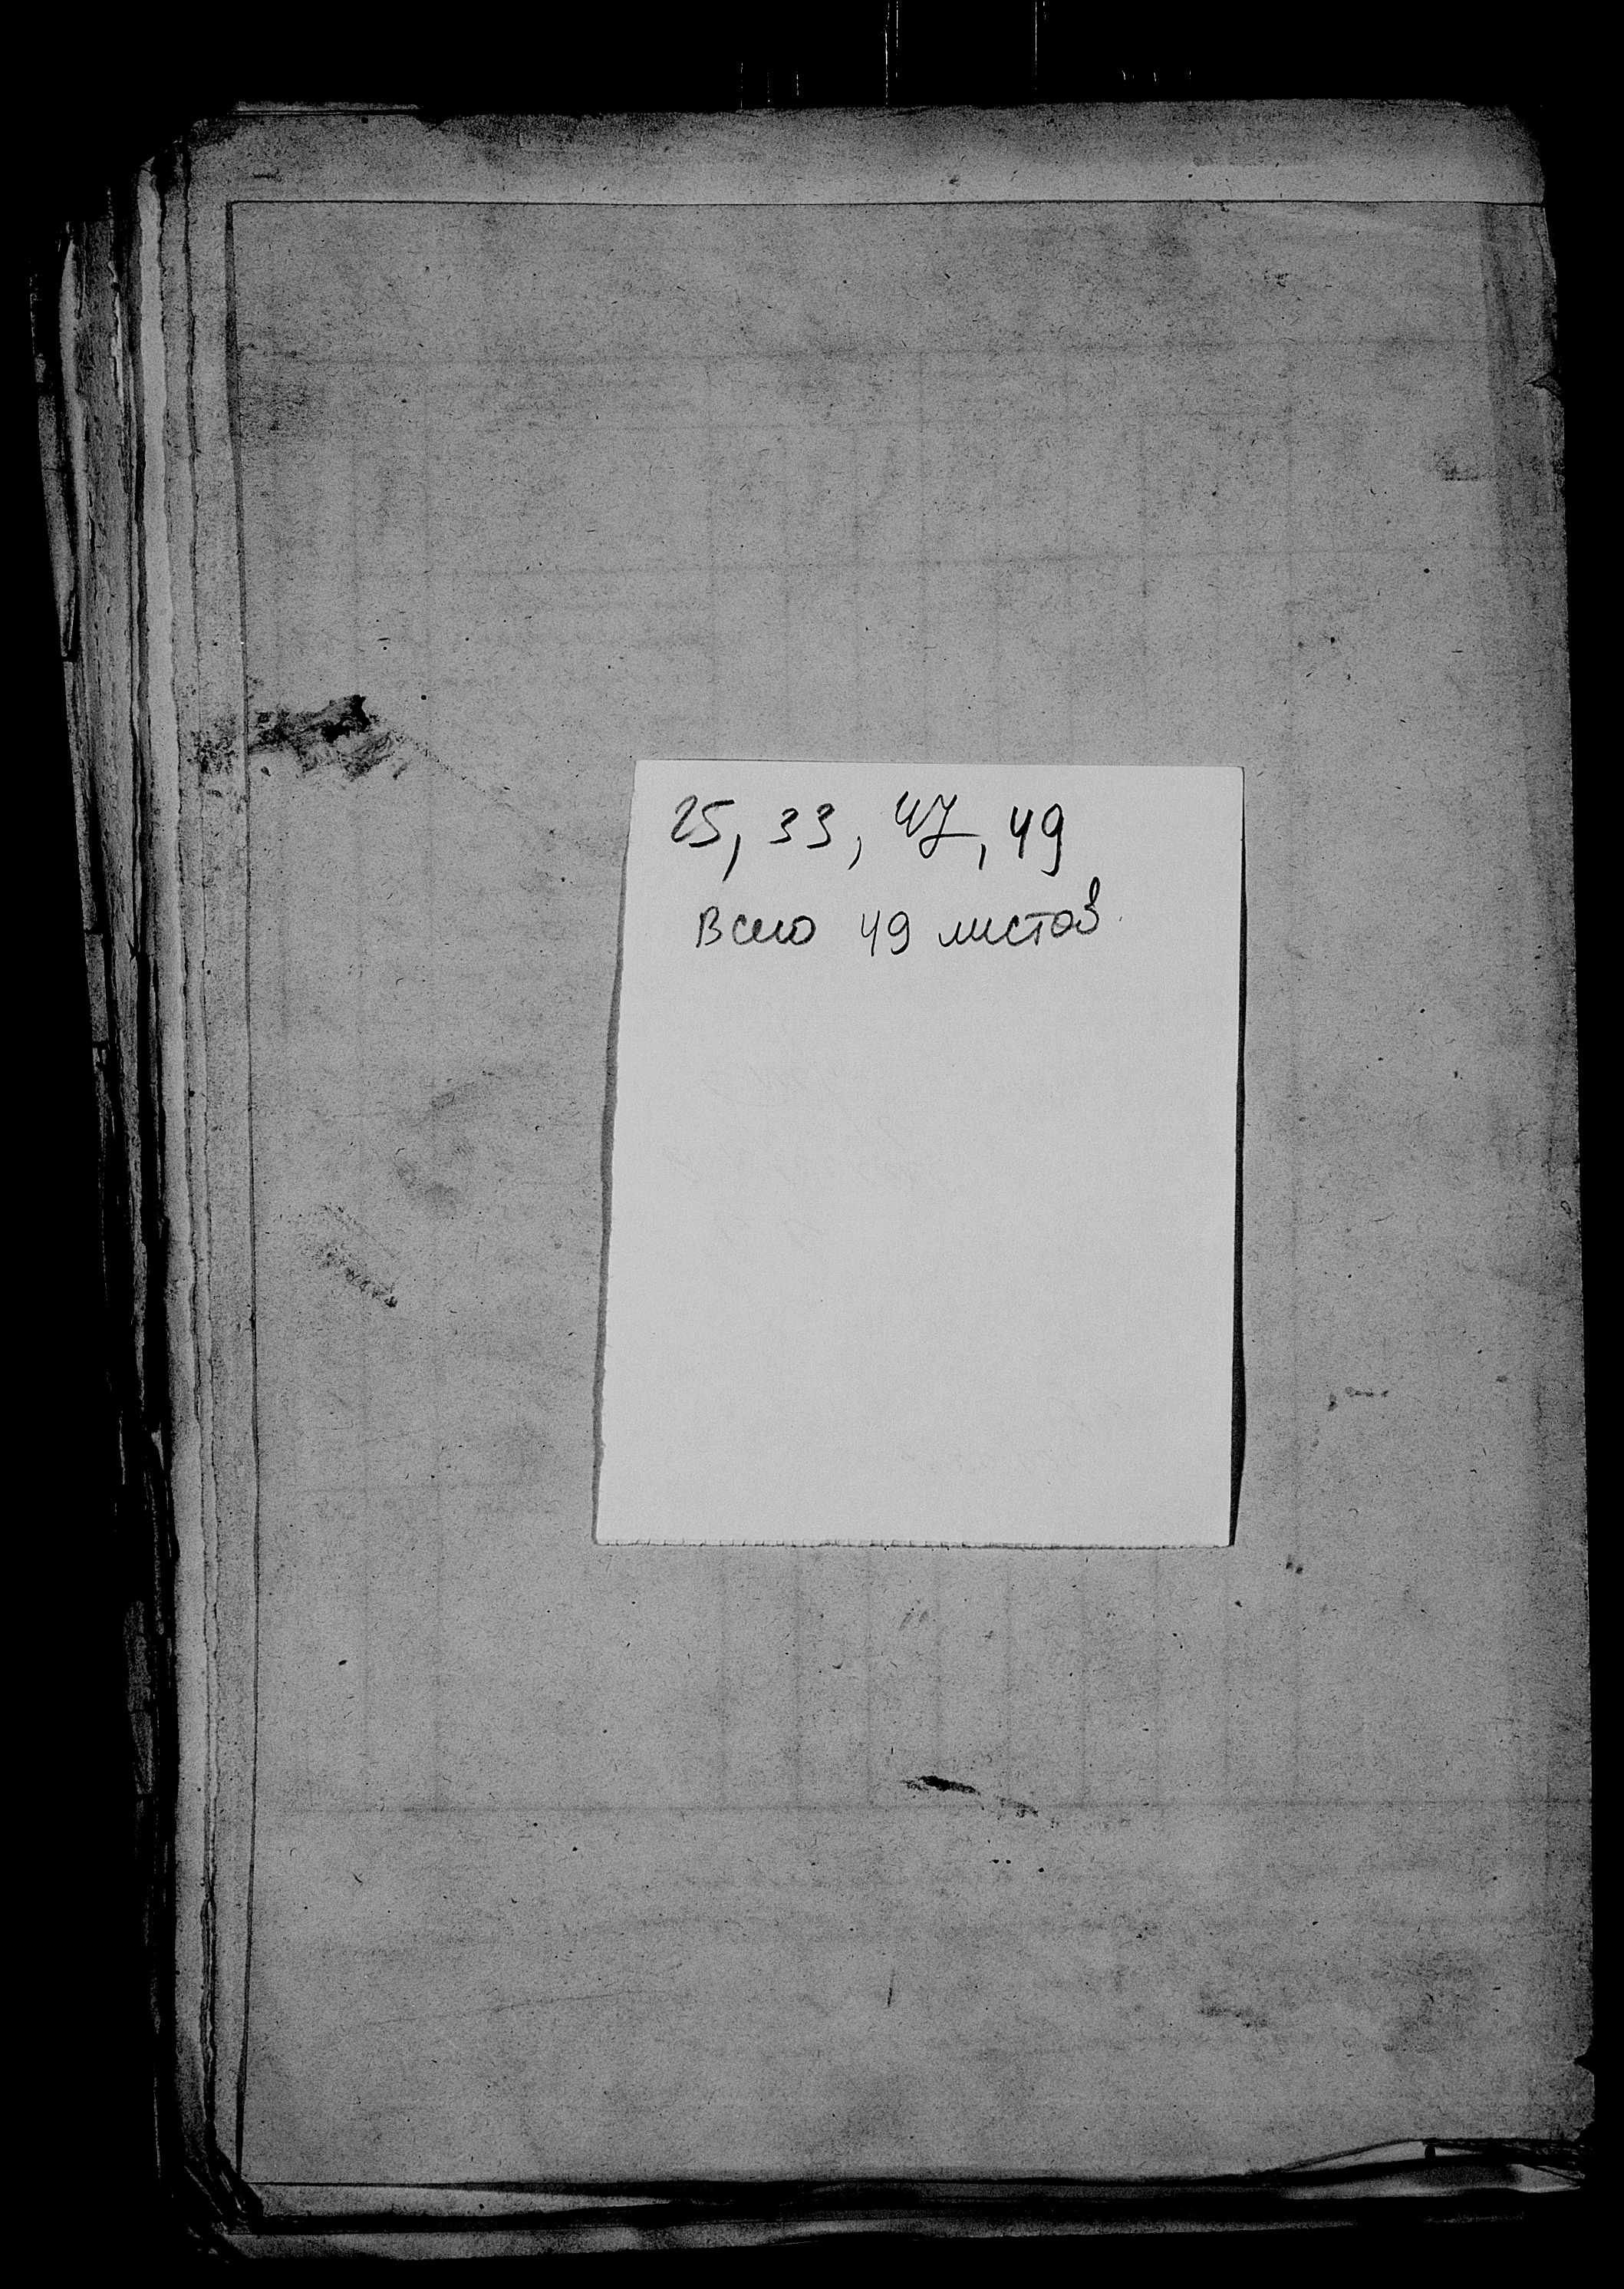 25, 33, 47, 49
Всего 49 листов